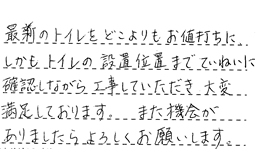 最新のトイレをどこよりもお値打ちに、
しかもトイレの設置位置までていねいに
確認しながら工事していただき大変
満足しております。 また機会が
ありましたらよろしくお願いします。